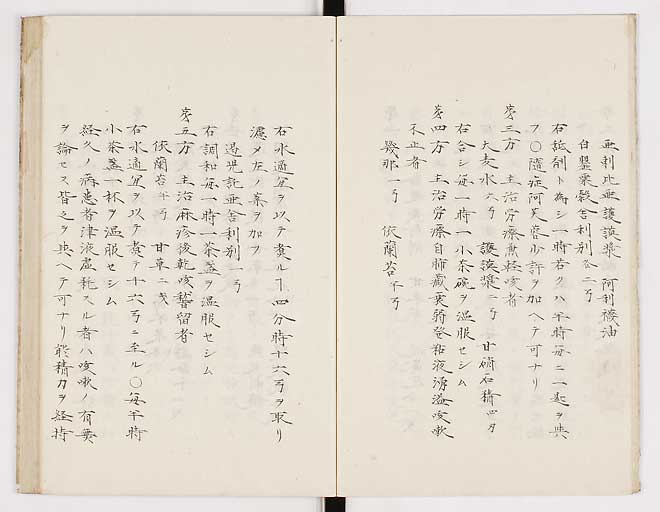 亜剌比亜護謨漿 阿利襪油
白罌粟殻舎利別各二弓
右舐剤ト為シ一時若クハ半時毎ニ二匙ヲ与
フ〇随症阿芙蓉少許ヲ加ヘテ可ナリ
第三方 主治労瘵焦軽咳者
大麦水六弓 護謨漿一弓 甘硝石精四刄
右合シ毎一時一小茶碗ヲ温服セシム
第四方 主治労瘵自肺臓衰弱登粘液湧溢咳嗽
不止者
幾那一弓 依蘭苔半弓
右水適宜ヲ以テ煮ル丁四分時十六弓ヲ取リ
濾メ左ノ薬ヲ加フ
遏児託亜舎利別一弓
右調和毎一時一茶盞ヲ温服セシム
第五方 主治麻疹後乾咳稽留者
依蘭苔半弓 甘草二戔
右水適宜ヲ以テ煮テ十六弓ニ至ル〇毎半時
小茶盞一杯ヲ温服セシム
経久ノ病患者津液虚耗スル者ハ咳嗽ノ有無
ヲ論セス皆之ヲ与ヘテ可ナリ能精力ヲ経持